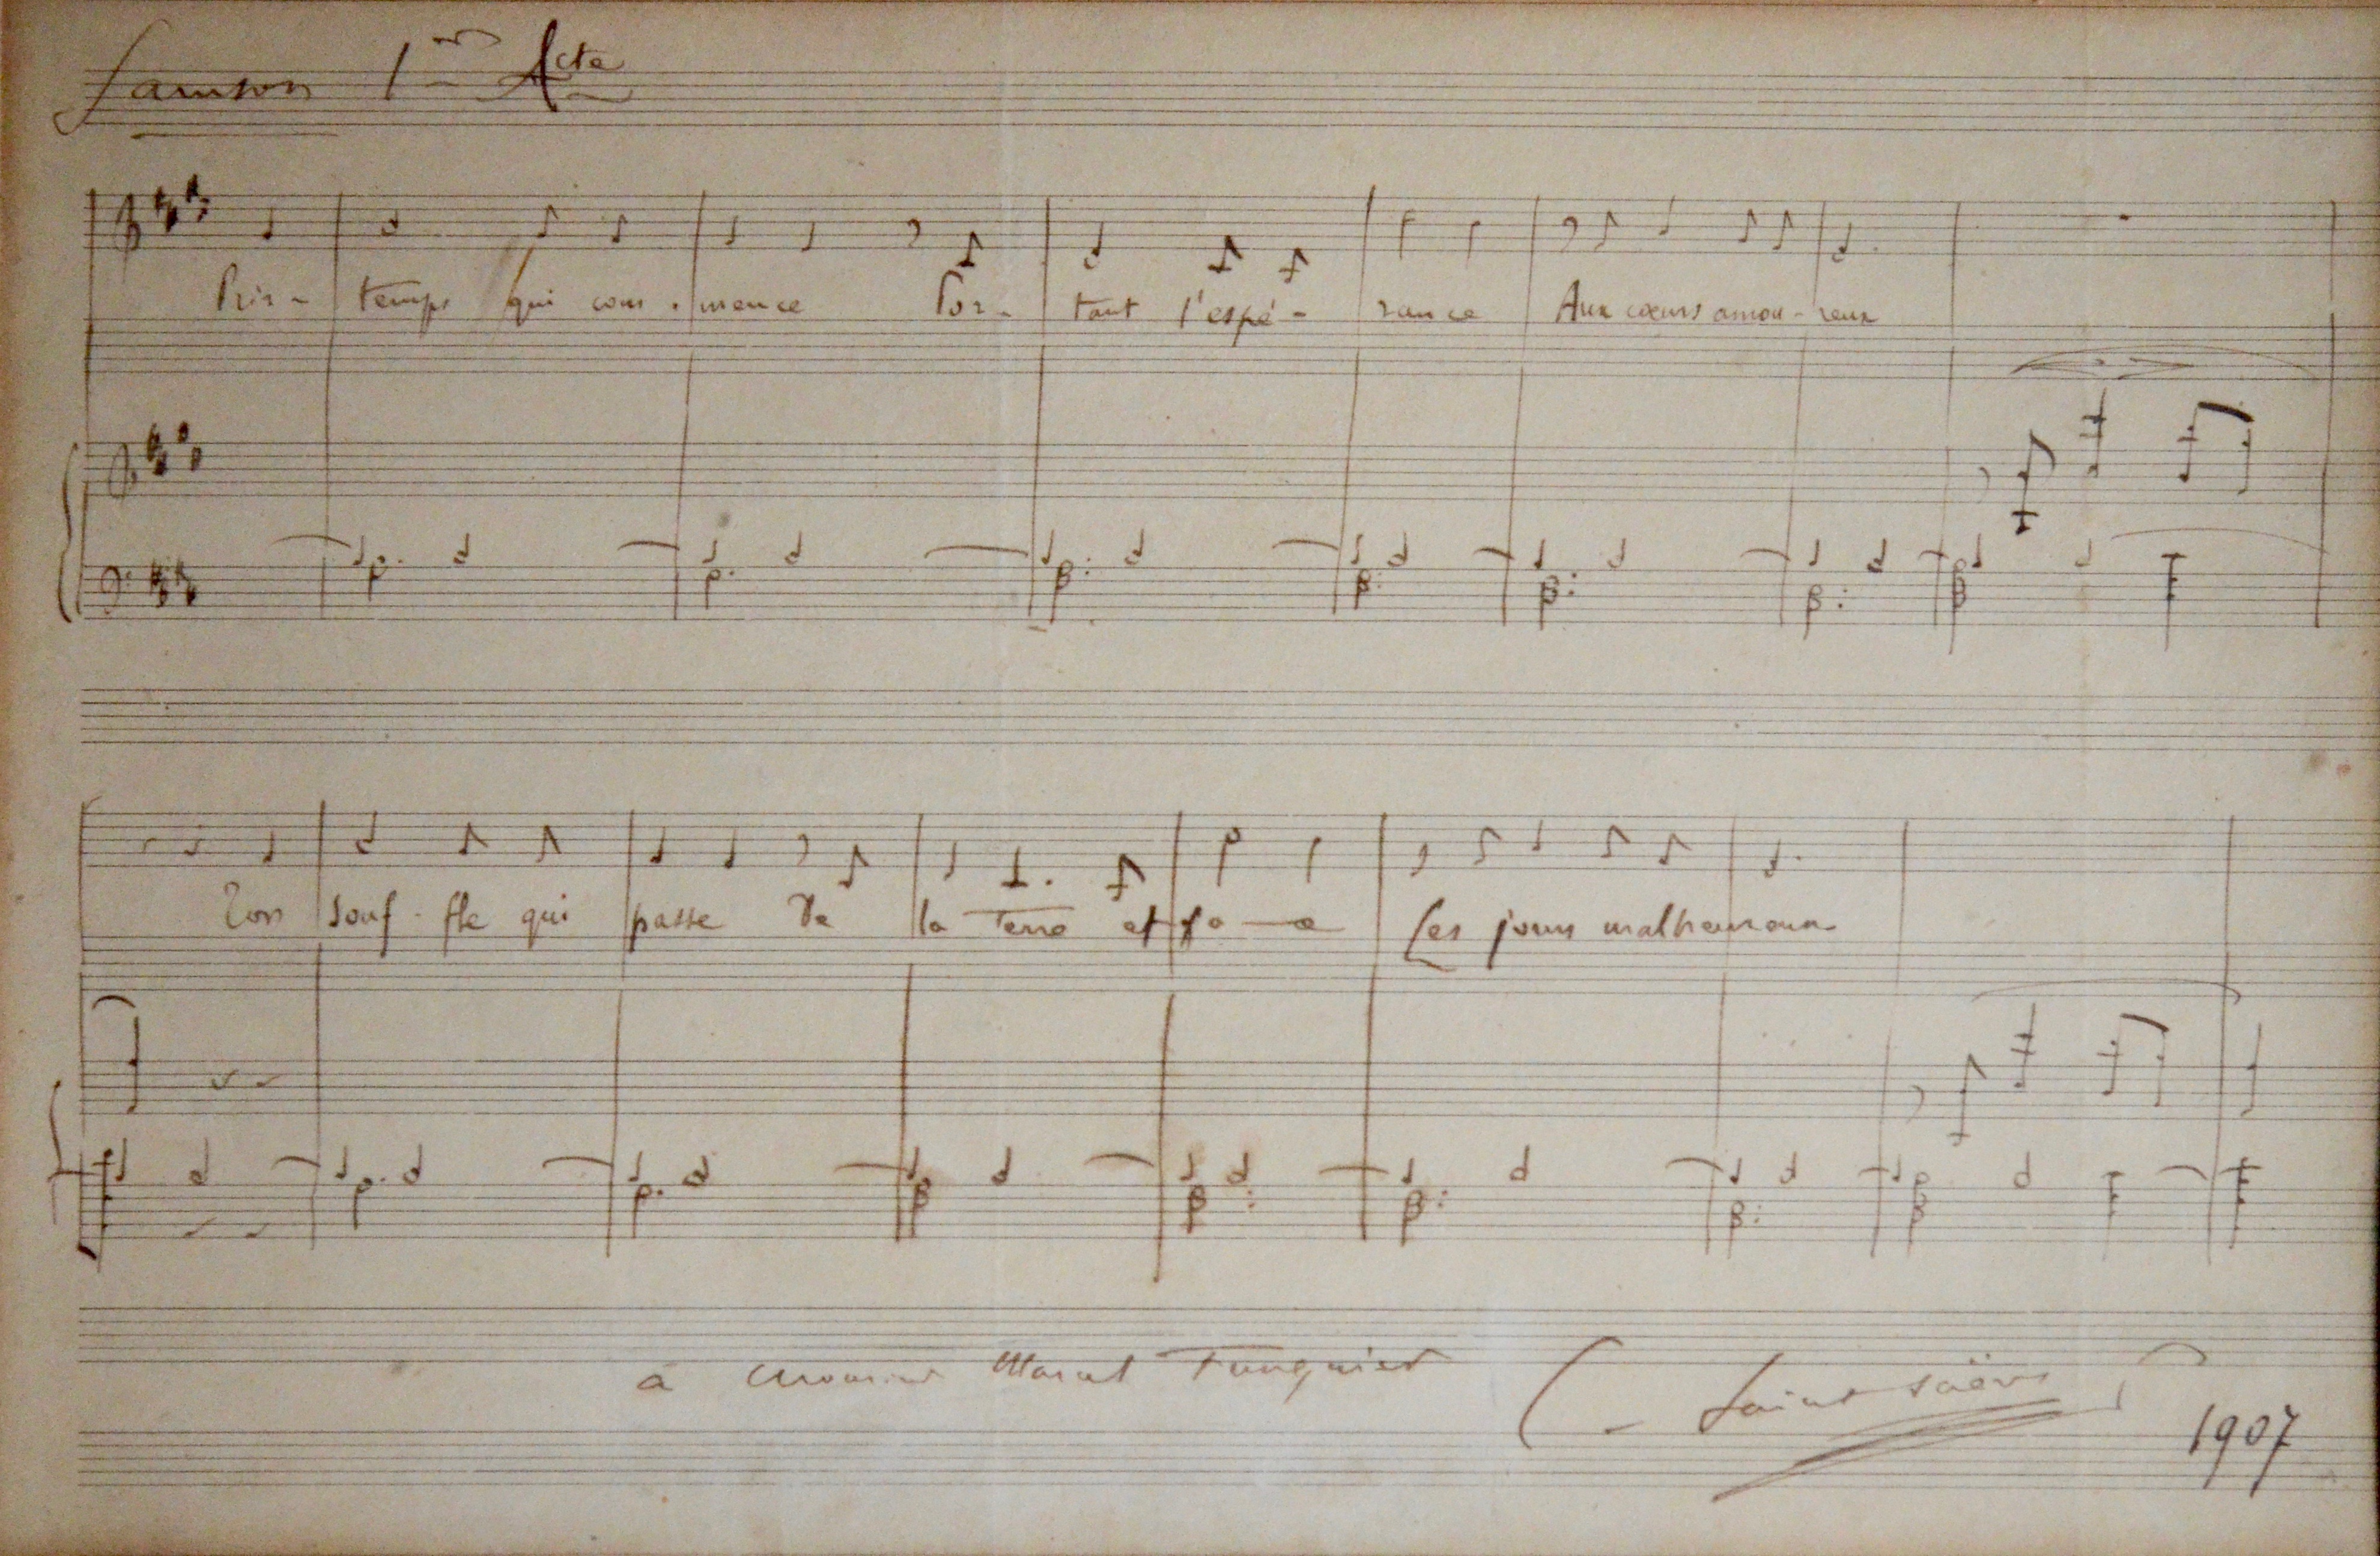 Samson 1er Acte
Prin- temps qui com - mence Por- tant l'espé- rance Aux cœurs amou- reux
Ton souf - fle qui passe De la Terre effa — ce Les jours malheureux
à Monsieur Marcel
C. Saint-Saëns
1907